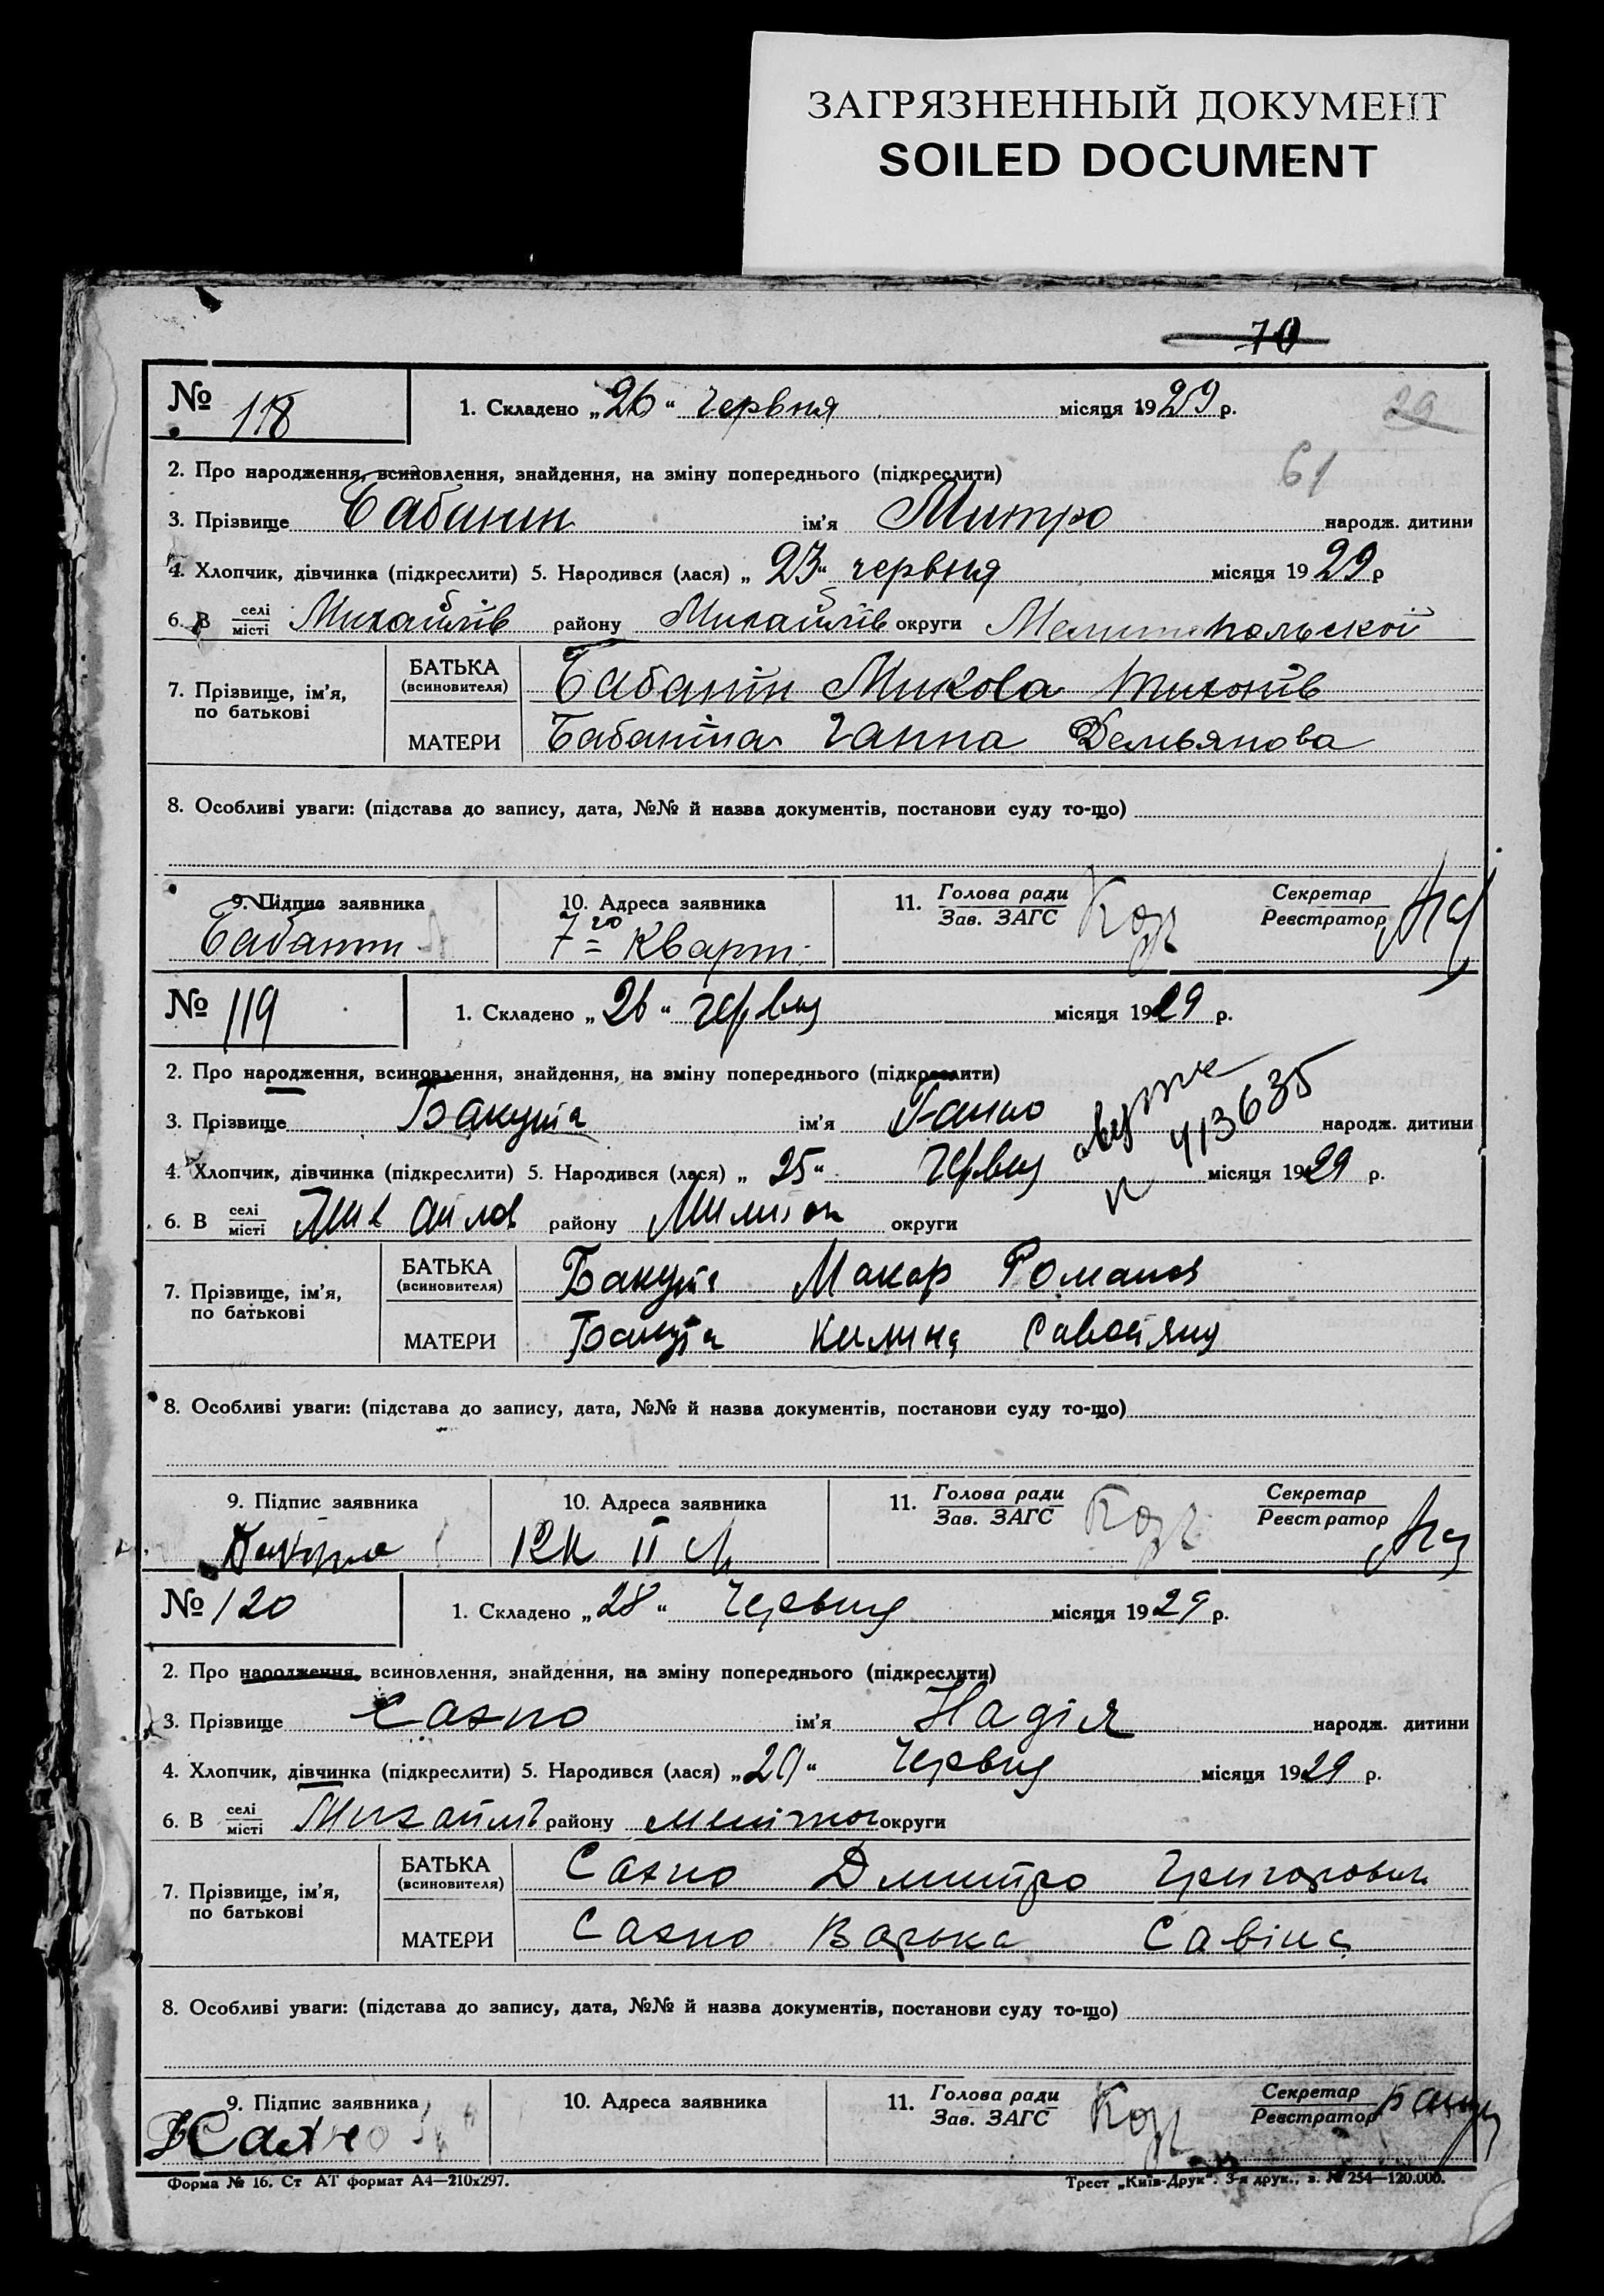 ЗАГРЯЗНЕННЫЙ ДОКУМЕНТ
SOILED DOCUMENT
70
№ 118 1. Складено „26“ червня місяця 1929 р.
29
2. Про народження, всиновлення, знайдення, на зміну попереднього (підкреслити)
61
3. Прізвище Бабанин ім'я Митро народж. дитини
4. Хлопчик, дівчинка (підкреслити) 5. Народився (лася) „23“ червня місяця 1929 р
6. В селі/місті Михайлів району Михайлів округи Мелитопольской
7. Прізвище, ім'я, по батькові
БАТЬКА (всиновителя) Бабанін Микола Тихонів
МАТЕРИ Бабаніна Ганна Демьянова
8. Особливі уваги: (підстава до запису, дата, №№ й назва документів, постанови суду то-що)
9. Підпис заявника 10. Адреса заявника 11. Голова ради/Зав. ЗАГС Секретар/Реєстратор
Бабанин 7го Кварт.
№ 119 1. Складено „26“ червня місяця 1929 р.
2. Про народження, всиновлення, знайдення, на зміну попереднього (підкреслити)
3. Прізвище Бакута ім'я Ганно народж. дитини
413635
4. Хлопчик, дівчинка (підкреслити) 5. Народився (лася) „25“ червня місяця 1929 р.
6. В селі/місті Михайлов району округи
7. Прізвище, ім'я, по батькові
БАТЬКА (всиновителя) Бакута Макар Романов
МАТЕРИ Бакута Килина
8. Особливі уваги: (підстава до запису, дата, №№ й назва документів, постанови суду то-що)
9. Підпис заявника 10. Адреса заявника 11. Голова ради/Зав. ЗАГС Секретар/Реєстратор
№ 120 1. Складено „28“ червня місяця 1929 р.
2. Про народження, всиновлення, знайдення, на зміну попереднього (підкреслити)
3. Прізвище Сахно ім'я Надія народж. дитини
4. Хлопчик, дівчинка (підкреслити) 5. Народився (лася) „20“ червня місяця 1929 р.
6. В селі/місті Михайлів району округи
7. Прізвище, ім'я, по батькові
БАТЬКА (всиновителя) Сахно Дмитро Григорович
МАТЕРИ Сахно Варька Савіна
8. Особливі уваги: (підстава до запису, дата, №№ й назва документів, постанови суду то-що)
9. Підпис заявника 10. Адреса заявника 11. Голова ради/Зав. ЗАГС Секретар/Реєстратор
Сахно
Форма № 16. Ст АТ формат А4—210х297. Трест „Київ-Друк“. 3-я друк., з. № 254—120.000.